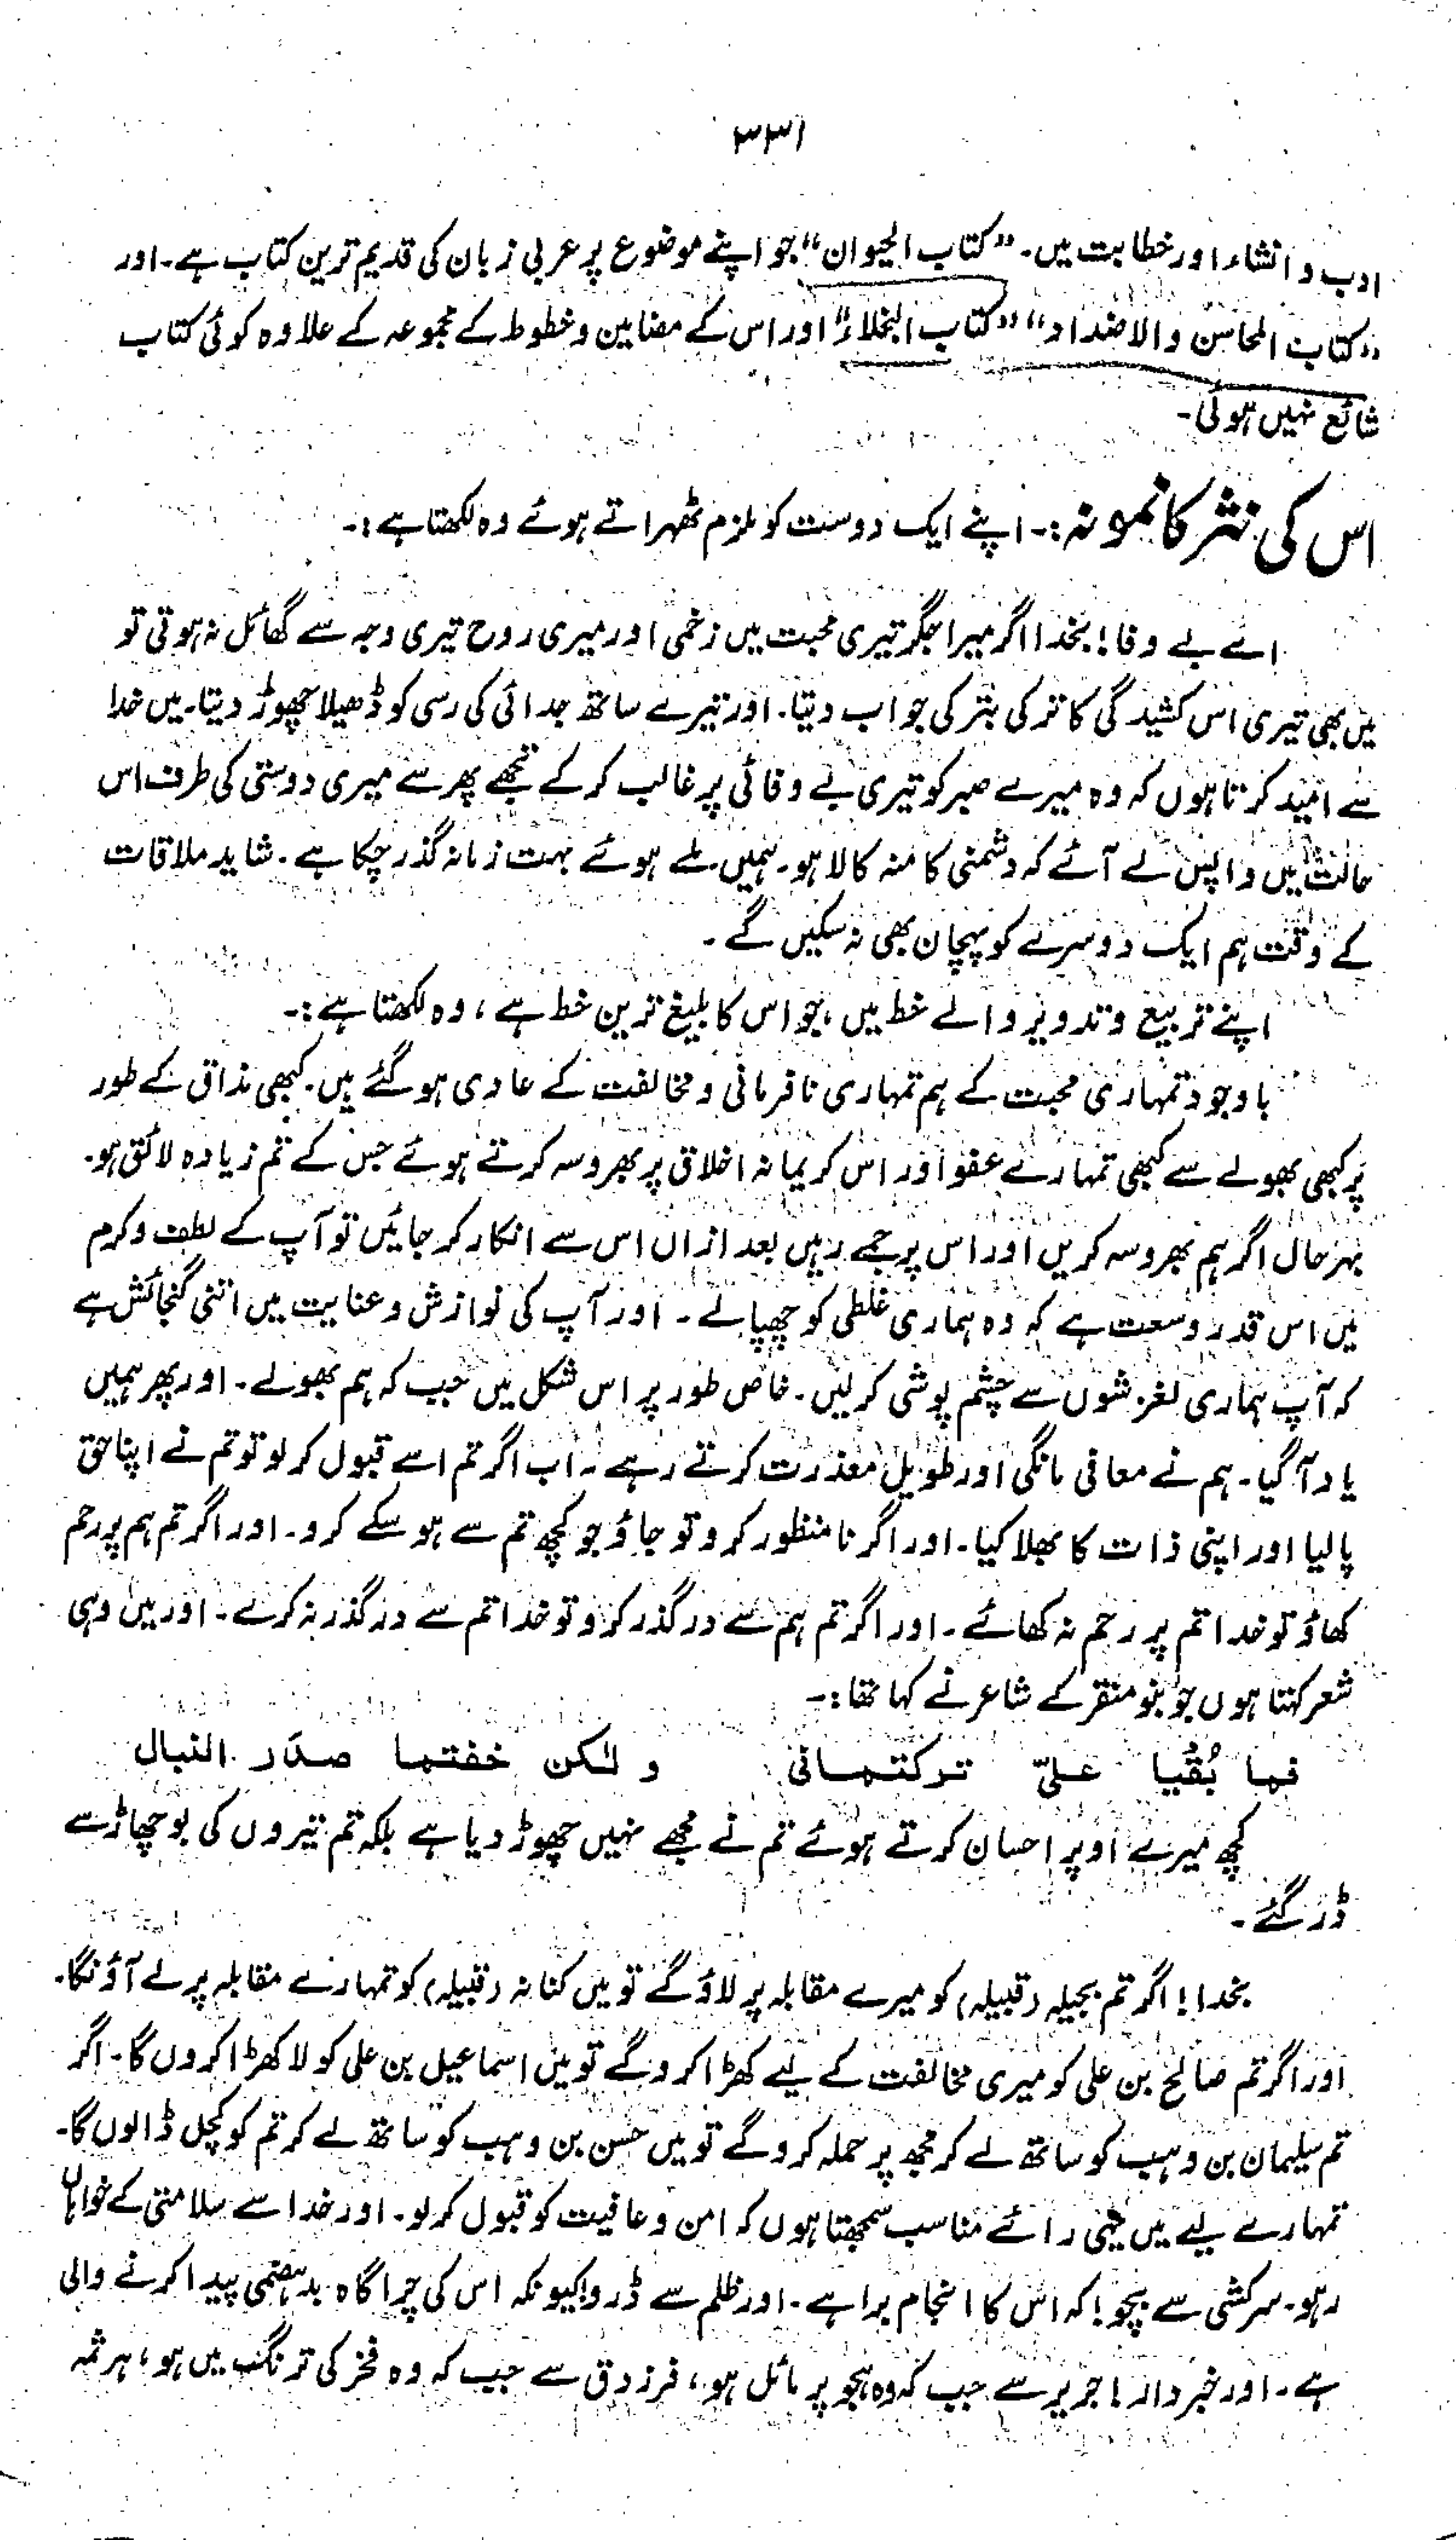 ۳۳۱
ادب و انشاء اور خطابت میں۔ "کتاب الحیوان" جو اپنے موضوع پر عربی زبان کی قدیم ترین کتاب ہے۔ اور
"کتاب المحاسن والاضداد" "کتاب البخلاء" اور اس کے مضامین و خطوط کے مجموعہ کے علاوہ کوئی کتاب
شائع نہیں ہوئی۔
اس کی نثر کا نمونہ :۔ اپنے ایک دوست کو ملزم ٹھہراتے ہوئے وہ لکھتا ہے :۔
اے بے وفا! بخدا اگر میرا جگر تیری محبت میں زخمی اور میری روح تیری وجہ سے گھائل نہ ہوتی تو
میں بھی تیری اس کشیدگی کا ترکی بترکی جواب دیتا۔ اور تیرے ساتھ جدائی کی رسی کو ڈھیلا چھوڑ دیتا۔ میں خدا
سے امید کرتا ہوں کہ وہ میرے صبر کو تیری بے وفائی پر غالب کر کے تجھے پھر سے میری دوستی کی طرف اس
حالت میں واپس لے آئے کہ دشمنی کا منہ کالا ہو۔ ہمیں ملے ہوئے بہت زمانہ گذر چکا ہے۔ شاید ملاقات
کے وقت ہم ایک دوسرے کو پہچان بھی نہ سکیں گے۔
اپنے تربیع و تدویر والے خط میں، جو اس کا بلیغ ترین خط ہے، وہ لکھتا ہے :۔
باوجود تمہاری محبت کے ہم تمہاری نافرمانی و مخالفت کے عادی ہو گئے ہیں۔ کبھی مذاق کے طور
پر کبھی بھولے سے کبھی تمہارے عفو اور اس کریمانہ اخلاق پر بھروسہ کرتے ہوئے جس کے تم زیادہ لائق ہو۔
بہرحال اگر ہم بھروسہ کریں اور اس پر جمے رہیں بعد ازاں اس سے انکار کر جائیں تو آپ کے لطف و کرم
میں اس قدر وسعت ہے کہ وہ ہماری غلطی کو چھپا لے۔ اور آپ کی نوازش و عنایت میں اتنی گنجائش ہے
کہ آپ ہماری لغزشوں سے چشم پوشی کر لیں۔ خاص طور پر اس شکل میں جب کہ ہم بھولے۔ اور پھر ہمیں
یاد آ گیا۔ ہم نے معافی مانگی اور طویل معذرت کرتے رہے۔ اب اگر تم اسے قبول کر لو تو تم نے اپنا حق
پا لیا اور اپنی ذات کا بھلا کیا۔ اور اگر نا منظور کرو تو جاؤ جو کچھ تم سے ہو سکے کرو۔ اور اگر تم ہم پر رحم
کھاؤ تو خدا تم پر رحم نہ کھائے۔ اور اگر تم ہم سے درگذر کرو تو خدا تم سے درگذر نہ کرے۔ اور میں وہی
شعر کہتا ہوں جو بنو منقر کے شاعر نے کہا تھا :۔
فما بُقْيا علیّ ترکتمانی و لکن خفتما صرَد النبال
کچھ میرے اوپر احسان کرتے ہوئے تم نے مجھے نہیں چھوڑ دیا ہے بلکہ تم تیروں کی بوچھاڑ سے
ڈر گئے۔
بخدا! اگر تم بجیلہ (قبیلہ) کو میرے مقابلہ پر لاؤ گے تو میں کنانہ (قبیلہ) کو تمہارے مقابلہ پر لے آؤنگا۔
اور اگر تم صالح بن علی کو میری مخالفت کے لیے کھڑا کرو گے تو میں اسماعیل بن علی کو لا کھڑا کروں گا۔ اگر
تم سلیمان بن وہب کو ساتھ لے کر مجھ پر حملہ کرو گے تو میں حسن بن وہب کو ساتھ لے کر تم کو کچل ڈالوں گا۔
تمہارے لیے میں یہی رائے مناسب سمجھتا ہوں کہ امن و عافیت کو قبول کر لو۔ اور خدا سے سلامتی کے خواہاں
رہو۔ سرکشی سے بچو! کہ اس کا انجام برا ہے۔ اور ظلم سے ڈرو! کیونکہ اس کی چراگاہ بدہضمی پیدا کرنے والی
ہے۔ اور خبردار! جریر سے جب کہ وہ ہجو پر مائل ہو، فرزدق سے جب کہ وہ فخر کی ترنگ میں ہو، ہرثمہ